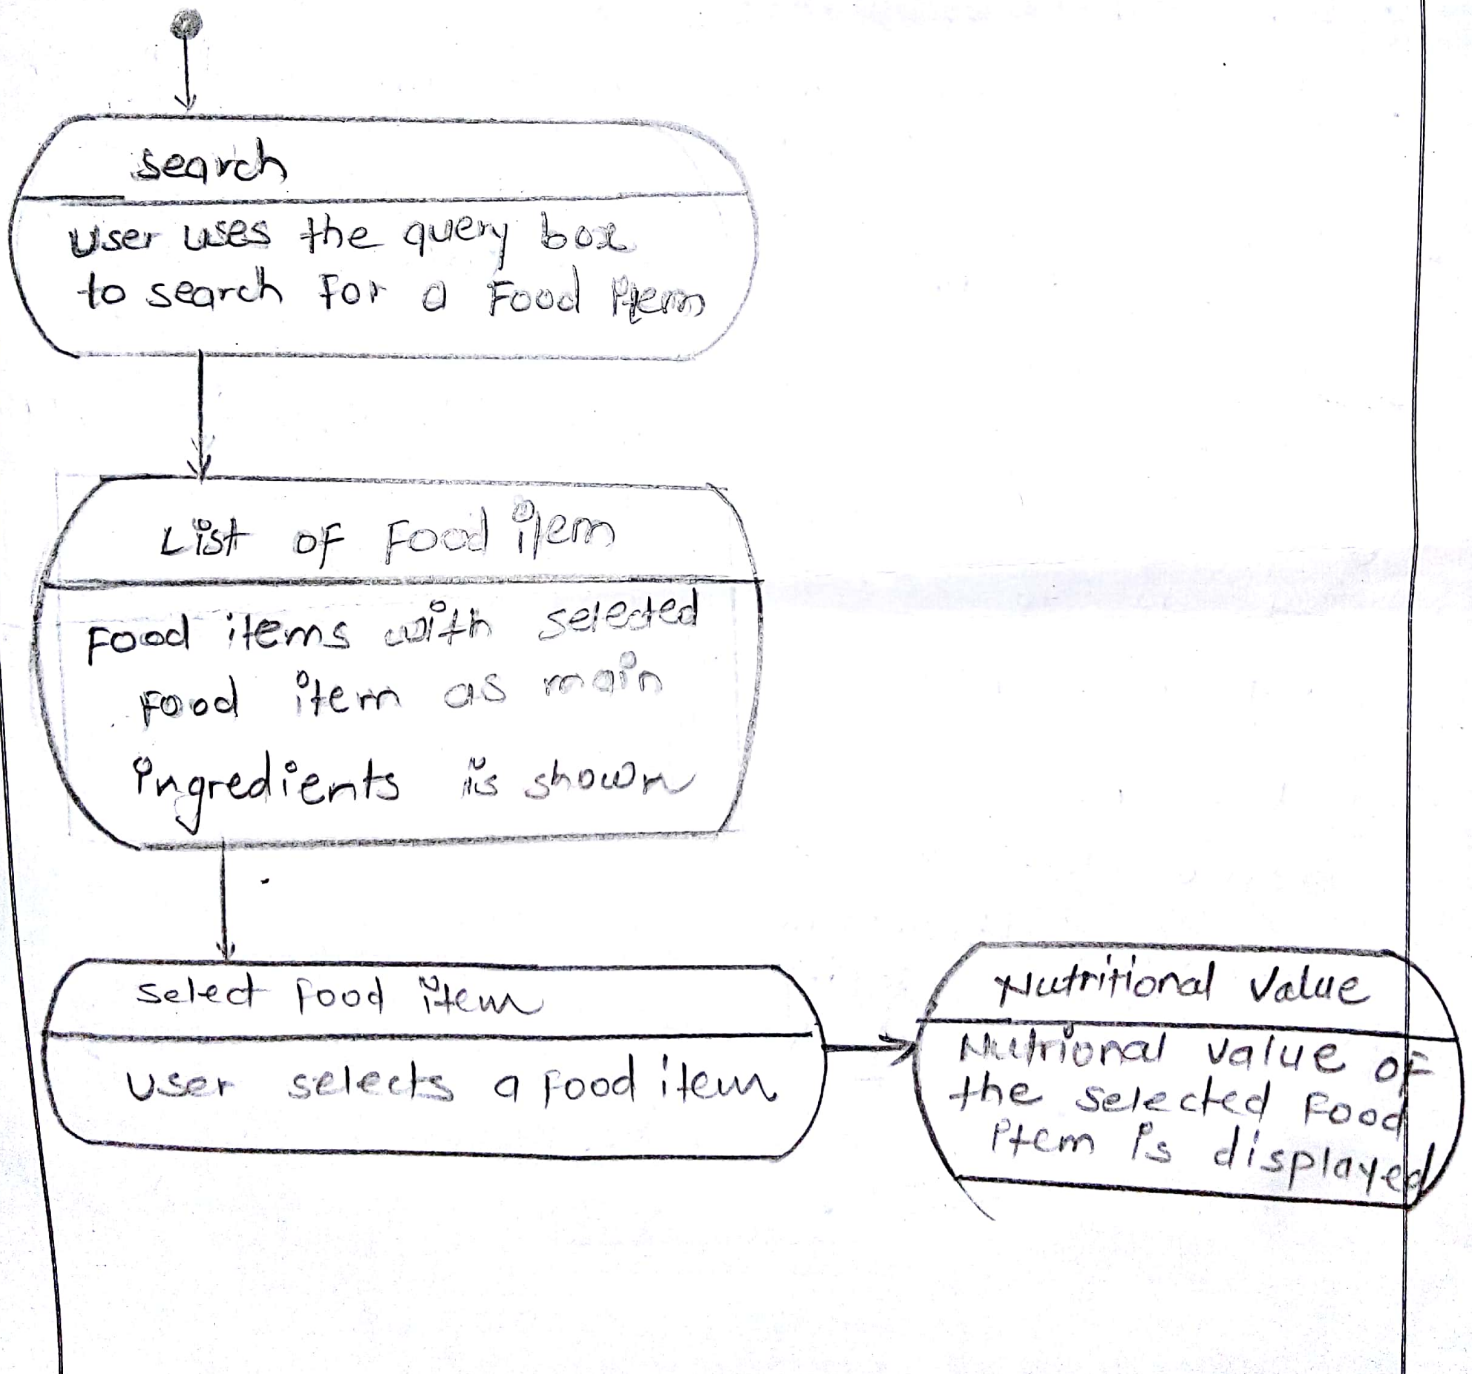 search
User uses the query box
to search for a Food Item
List of Food item
Food items with selected
Food item as main
ingredients is shown
Select Food item
User selects a Food item
Nutritional Value
Nutrional value of
the selected Food
Item is displayed